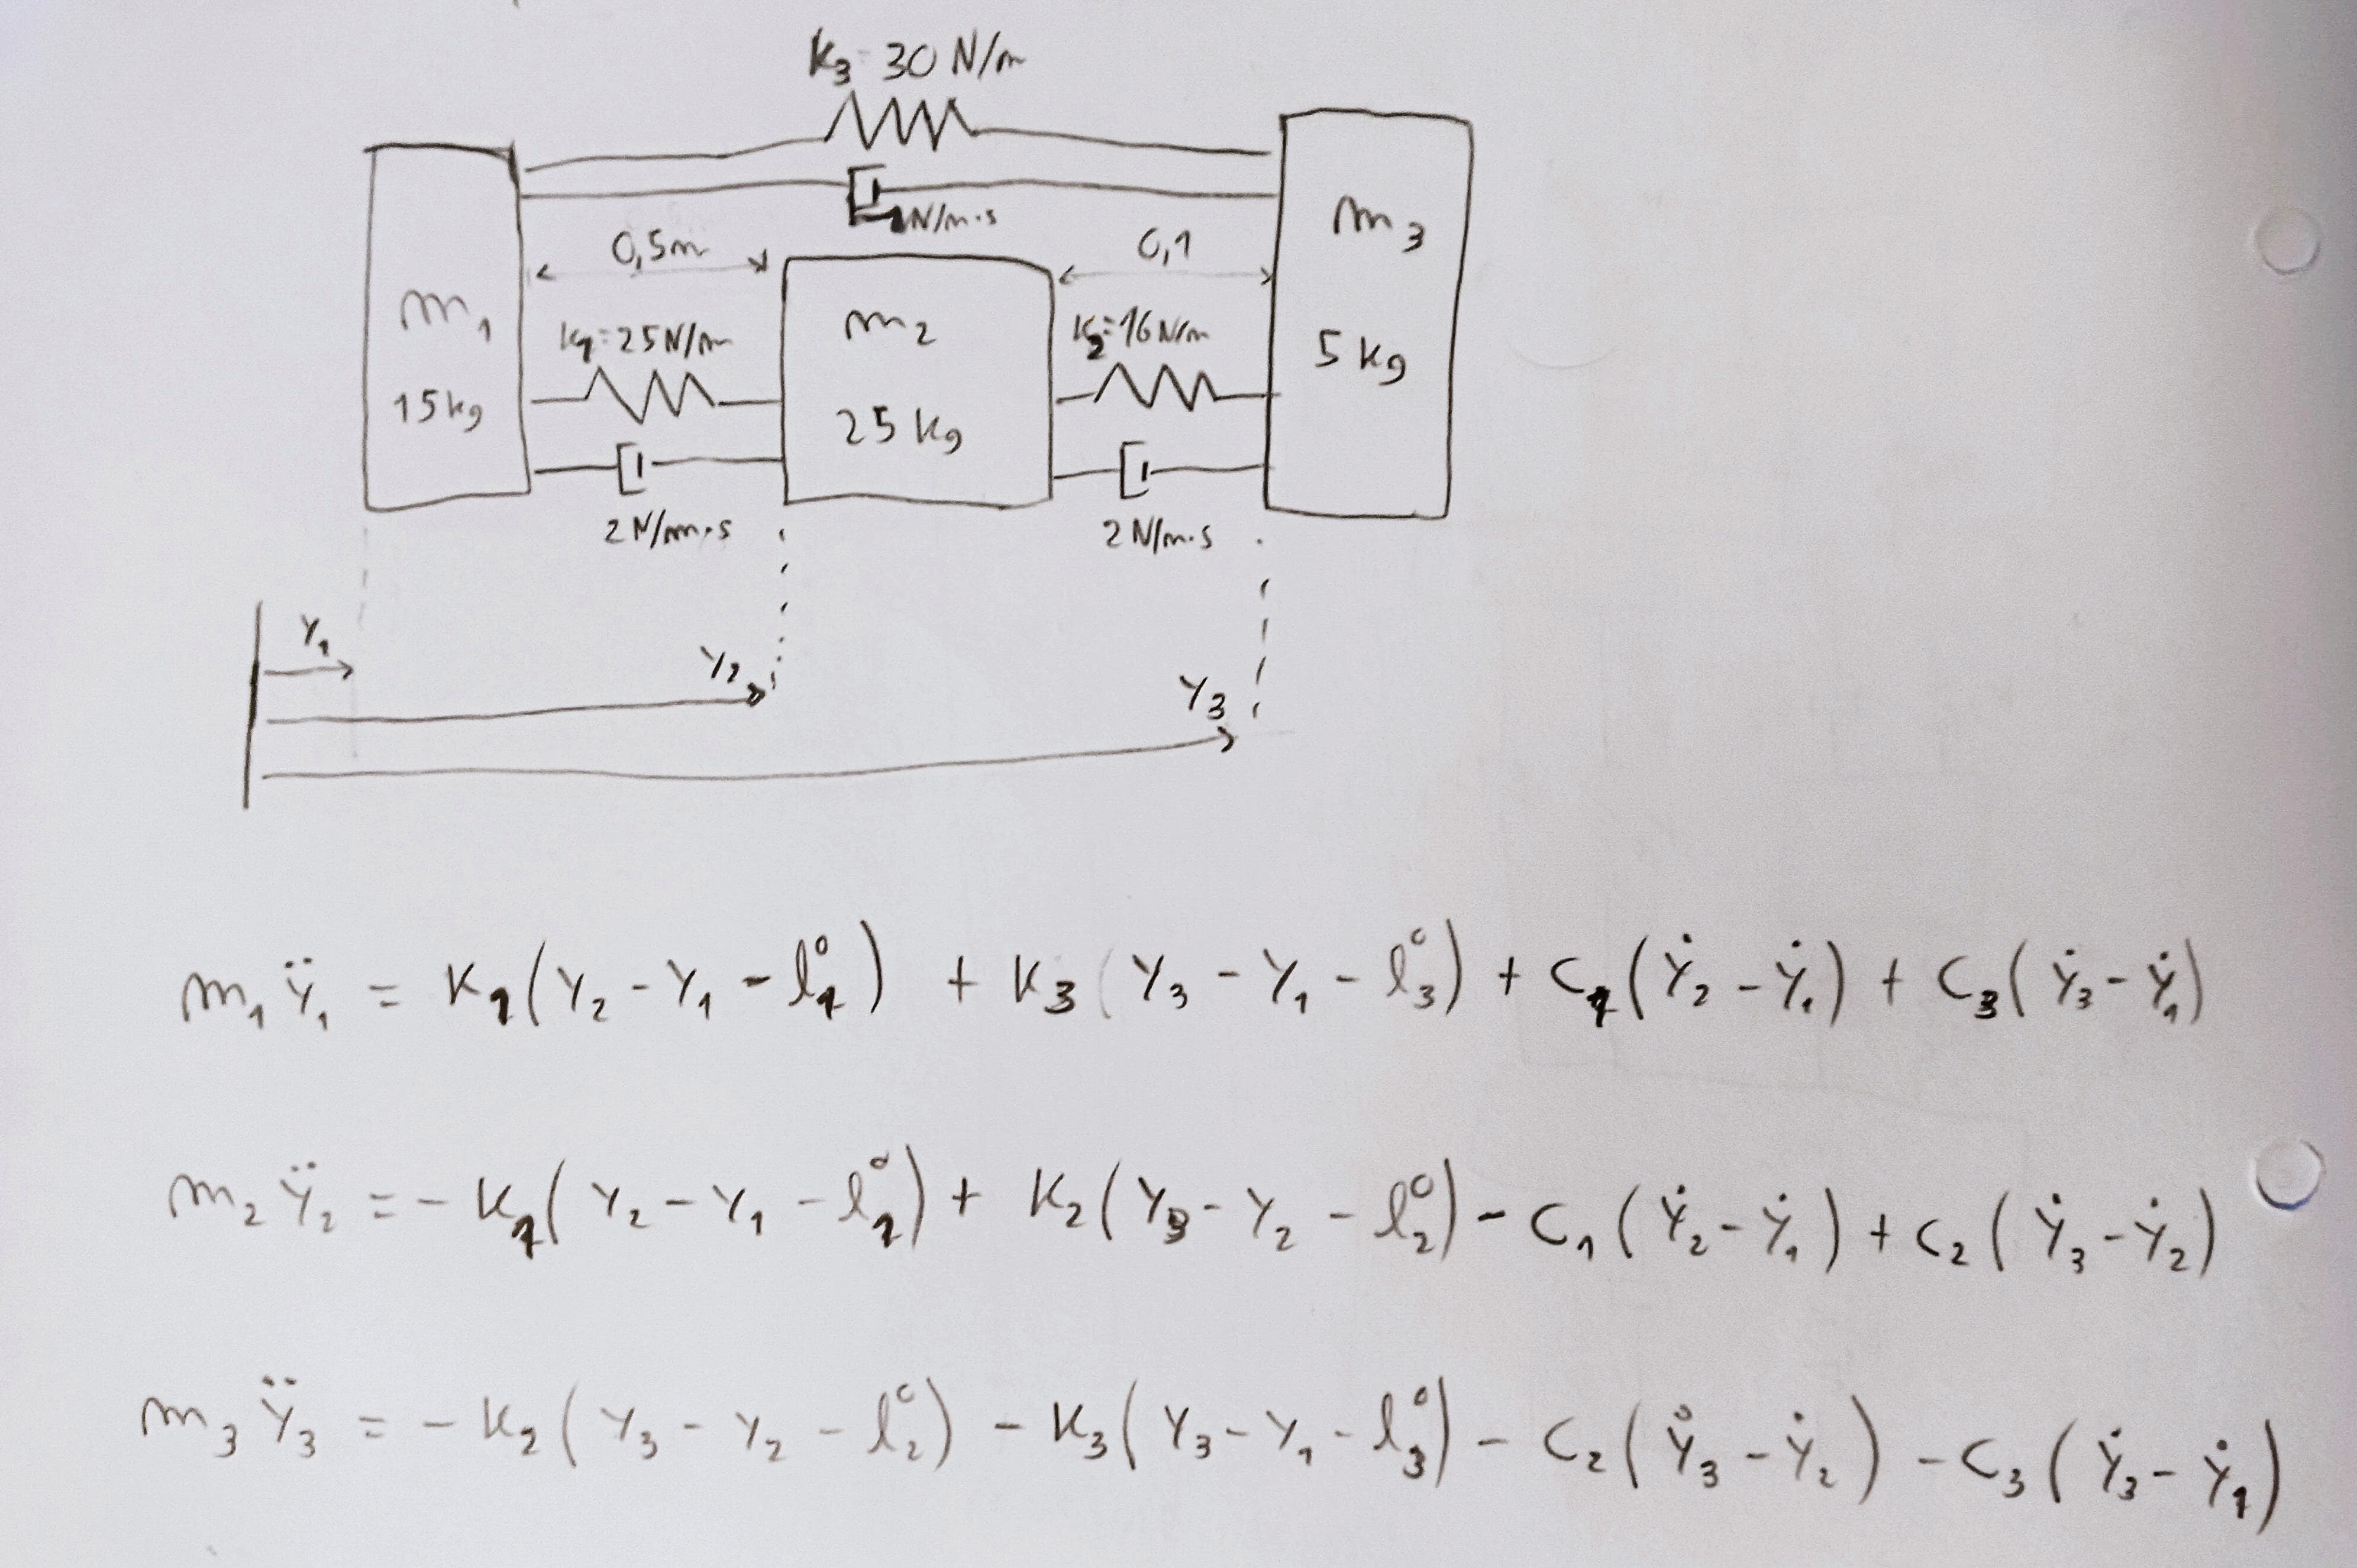 K₃ = 30 N/m
1N/m·s
0,5m
0,1
m₁
15kg
K₁=25N/m
m₂
25 kg
K₂=16N/m
m₃
5 kg
2 N/m·s
2 N/m·s
Y₁
Y₂
Y₃
m₁ Ÿ₁ = K₁(Y₂ - Y₁ - l₁°) + K₃(Y₃ - Y₁ - l₃°) + C₁(Ẏ₂ - Ẏ₁) + C₃(Ẏ₃ - Ẏ₁)
m₂ Ÿ₂ = - K₁(Y₂ - Y₁ - l₁°) + K₂(Y₃ - Y₂ - l₂°) - C₁(Ẏ₂ - Ẏ₁) + C₂(Ẏ₃ - Ẏ₂)
m₃ Ÿ₃ = - K₂(Y₃ - Y₂ - l₂°) - K₃(Y₃ - Y₁ - l₃°) - C₂(Ẏ₃ - Ẏ₂) - C₃(Ẏ₃ - Ẏ₁)